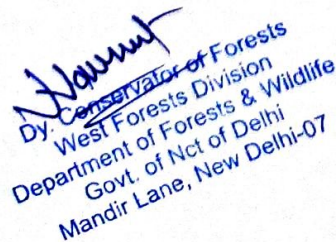 Dy. Conservator of Forests
West Forests Division
Department of Forests & Wildlife
Govt. of Nct of Delhi
Mandir Lane, New Delhi-07